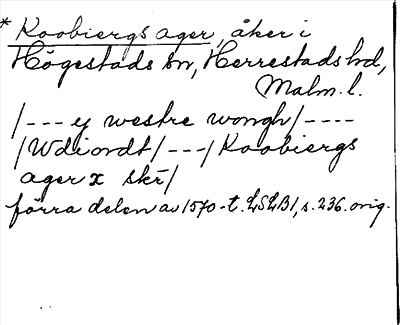 * Koobiergs ager, åker i
Högestads sn, Herrestads hd,
Malm. l.
/--- ej westre wongh/----
/Wdi ordt/---/Koobiergs
ager x skr̄/
förra delen av 1570-t. LSLB1, s. 236. orig.